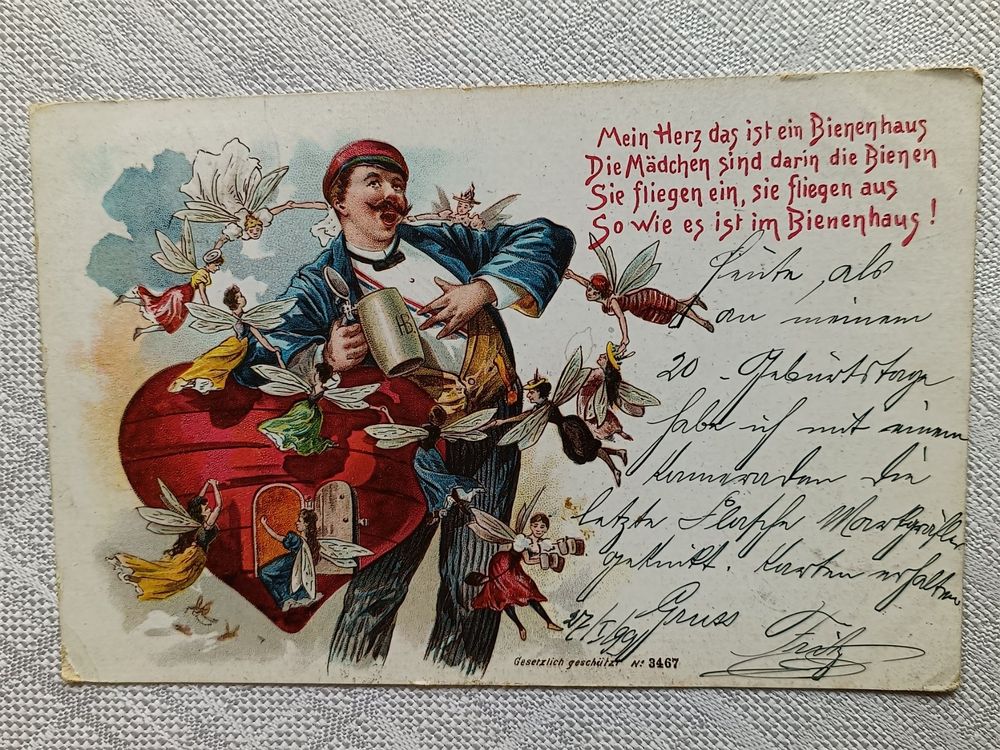 Mein Herz das ist ein Bienenhaus
Die Mädchen sind darin die Bienen
Sie fliegen ein, sie fliegen aus
So wie es ist im Bienenhaus!
Heute, als
an meinem
20. Geburtstage
habe ich mit einem
Kameraden die
letzte Flasche Markgräfler
geknikt. Karten erhalten
Gruss
Fritz
27/I
HB
Gesetzlich geschützt No. 3467